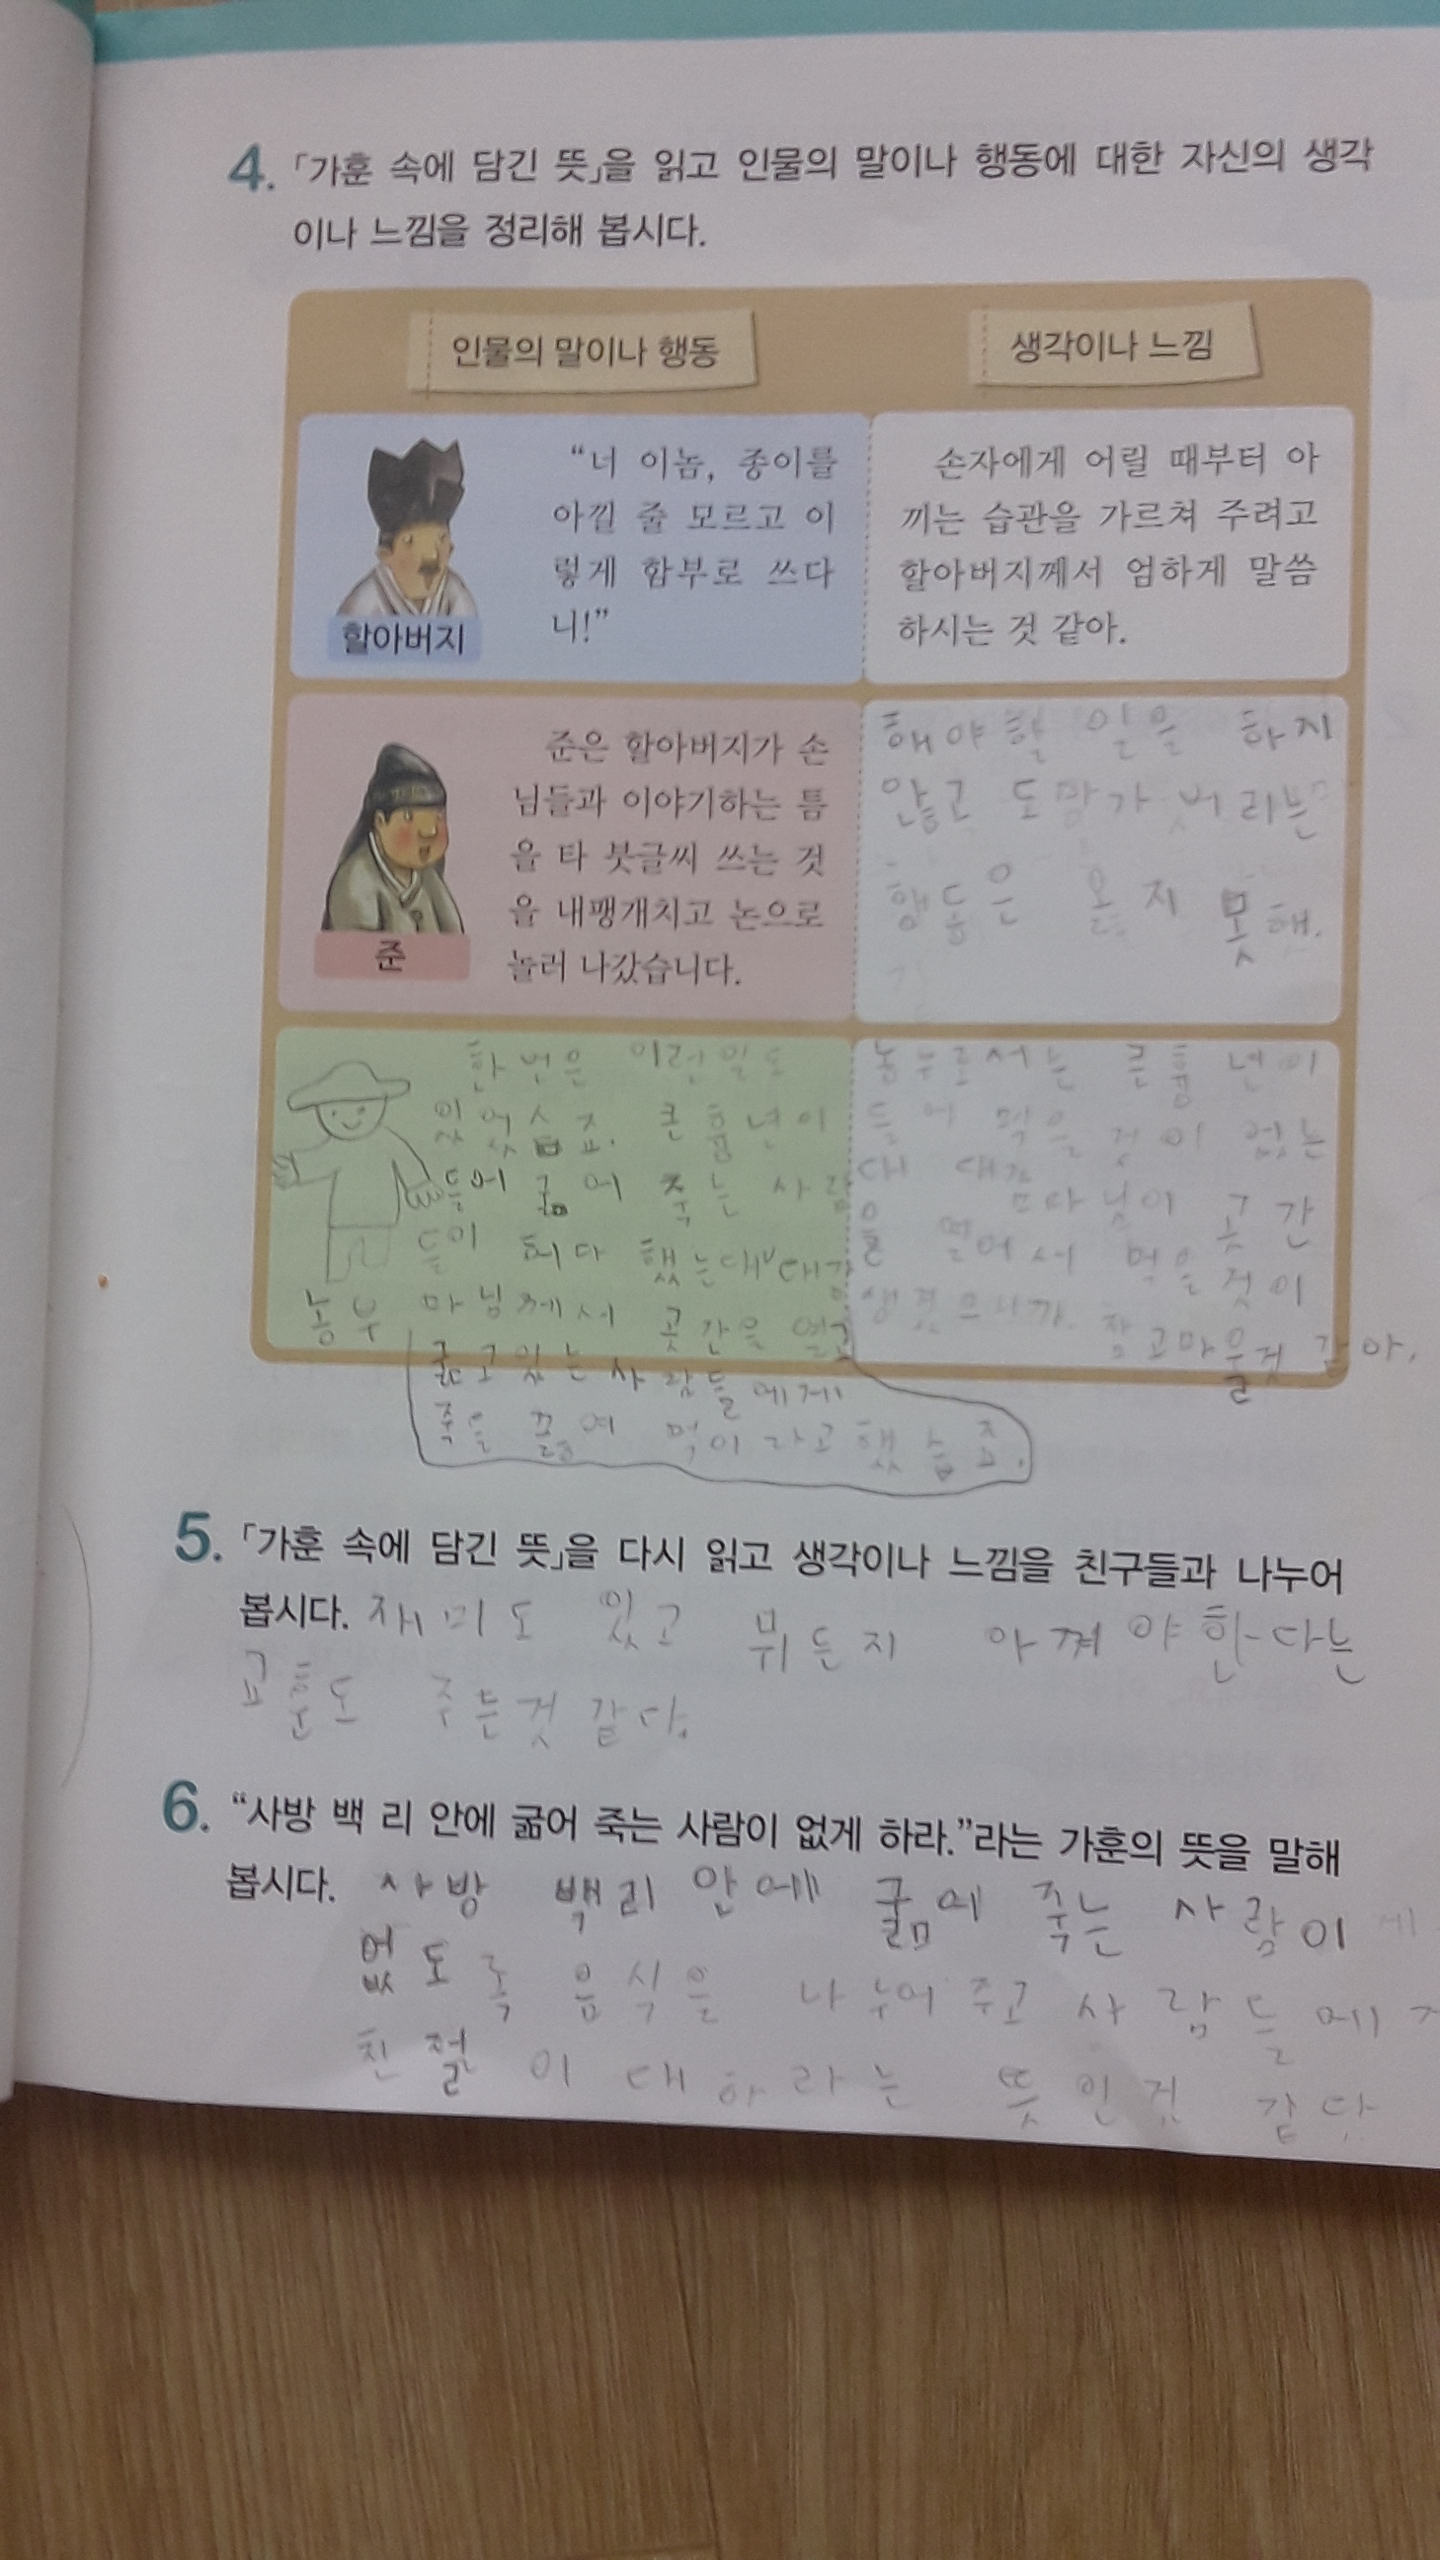 4. 「가훈 속에 담긴 뜻」을 읽고 인물의 말이나 행동에 대한 자신의 생각
이나 느낌을 정리해 봅시다.
인물의 말이나 행동
생각이나 느낌
“너 이놈, 종이를
아낄 줄 모르고 이
렇게 함부로 쓰다
니!”
할아버지
손자에게 어릴 때부터 아
끼는 습관을 가르쳐 주려고
할아버지께서 엄하게 말씀
하시는 것 같아.
준은 할아버지가 손
님들과 이야기하는 틈
을 타 붓글씨 쓰는 것
을 내팽개치고 논으로
놀러 나갔습니다.
준
해야할 일을 하지
않고 도망가 버리는
행동은 옳지 못해.
한번은 이런일도
있었습죠. 큰 흉년이
들어 굶어 죽는 사람
들이 허다 했는데 대감
마님께서 곳간을 열고
굶고있는 사람들에게
죽을 끓여 먹이라고 했습죠.
농부
농부로서는 큰 흉년이
들어 먹을 것이 없는
대 대감마님이 곳간
을 열어서 먹을 것이
생겼으니까. 참 고마울것 같아.
5. 「가훈 속에 담긴 뜻」을 다시 읽고 생각이나 느낌을 친구들과 나누어
봅시다. 재미도 있고 뭐든지 아껴야한다는
교훈도 주는것 같다.
6. “사방 백 리 안에 굶어 죽는 사람이 없게 하라.”라는 가훈의 뜻을 말해
봅시다. 사방 백리 안에 굶어 죽는 사람이
없도록 음식을 나누어 주고 사람들에게
친절이 대하라는 뜻인것 같다.